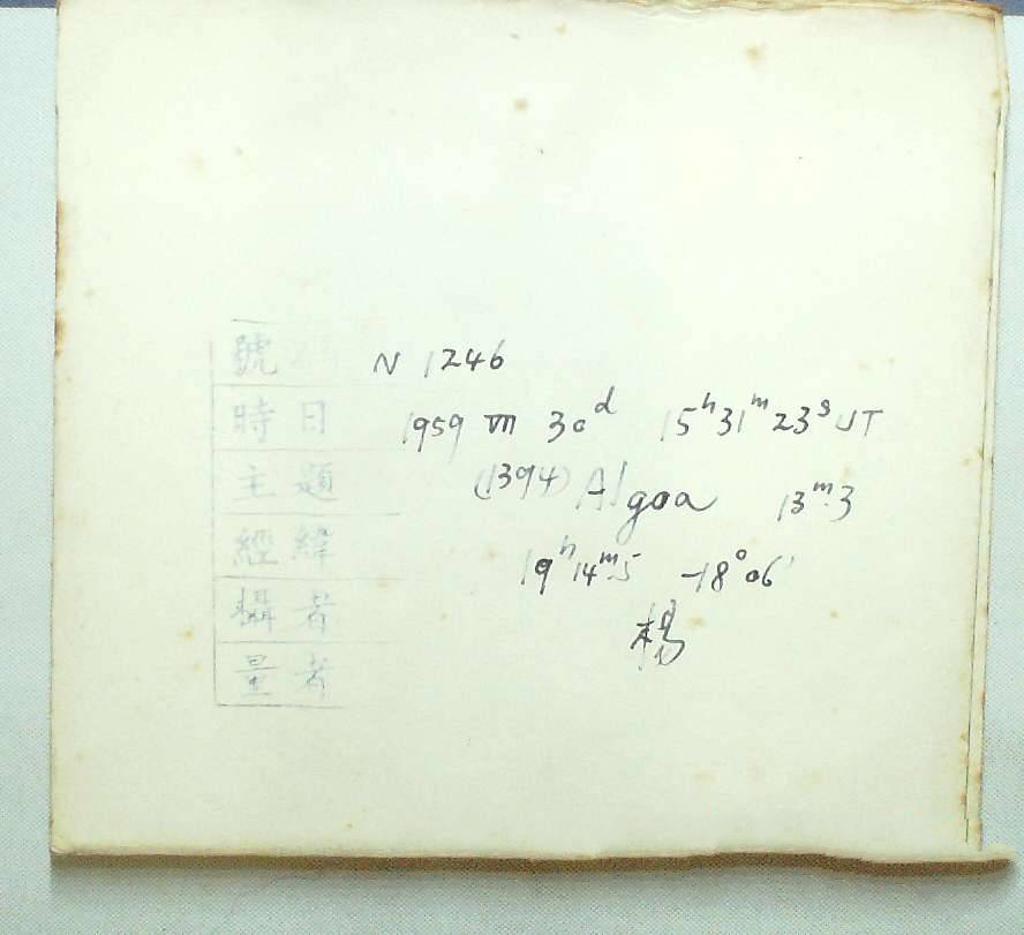 號 N 1246
時日 1959 VII 30ᵈ 15ʰ31ᵐ23ˢ UT
主題 (1394) Algoa 13ᵐ.3
經緯 19ʰ14ᵐ.5 -18°06'
攝者 楊
量者